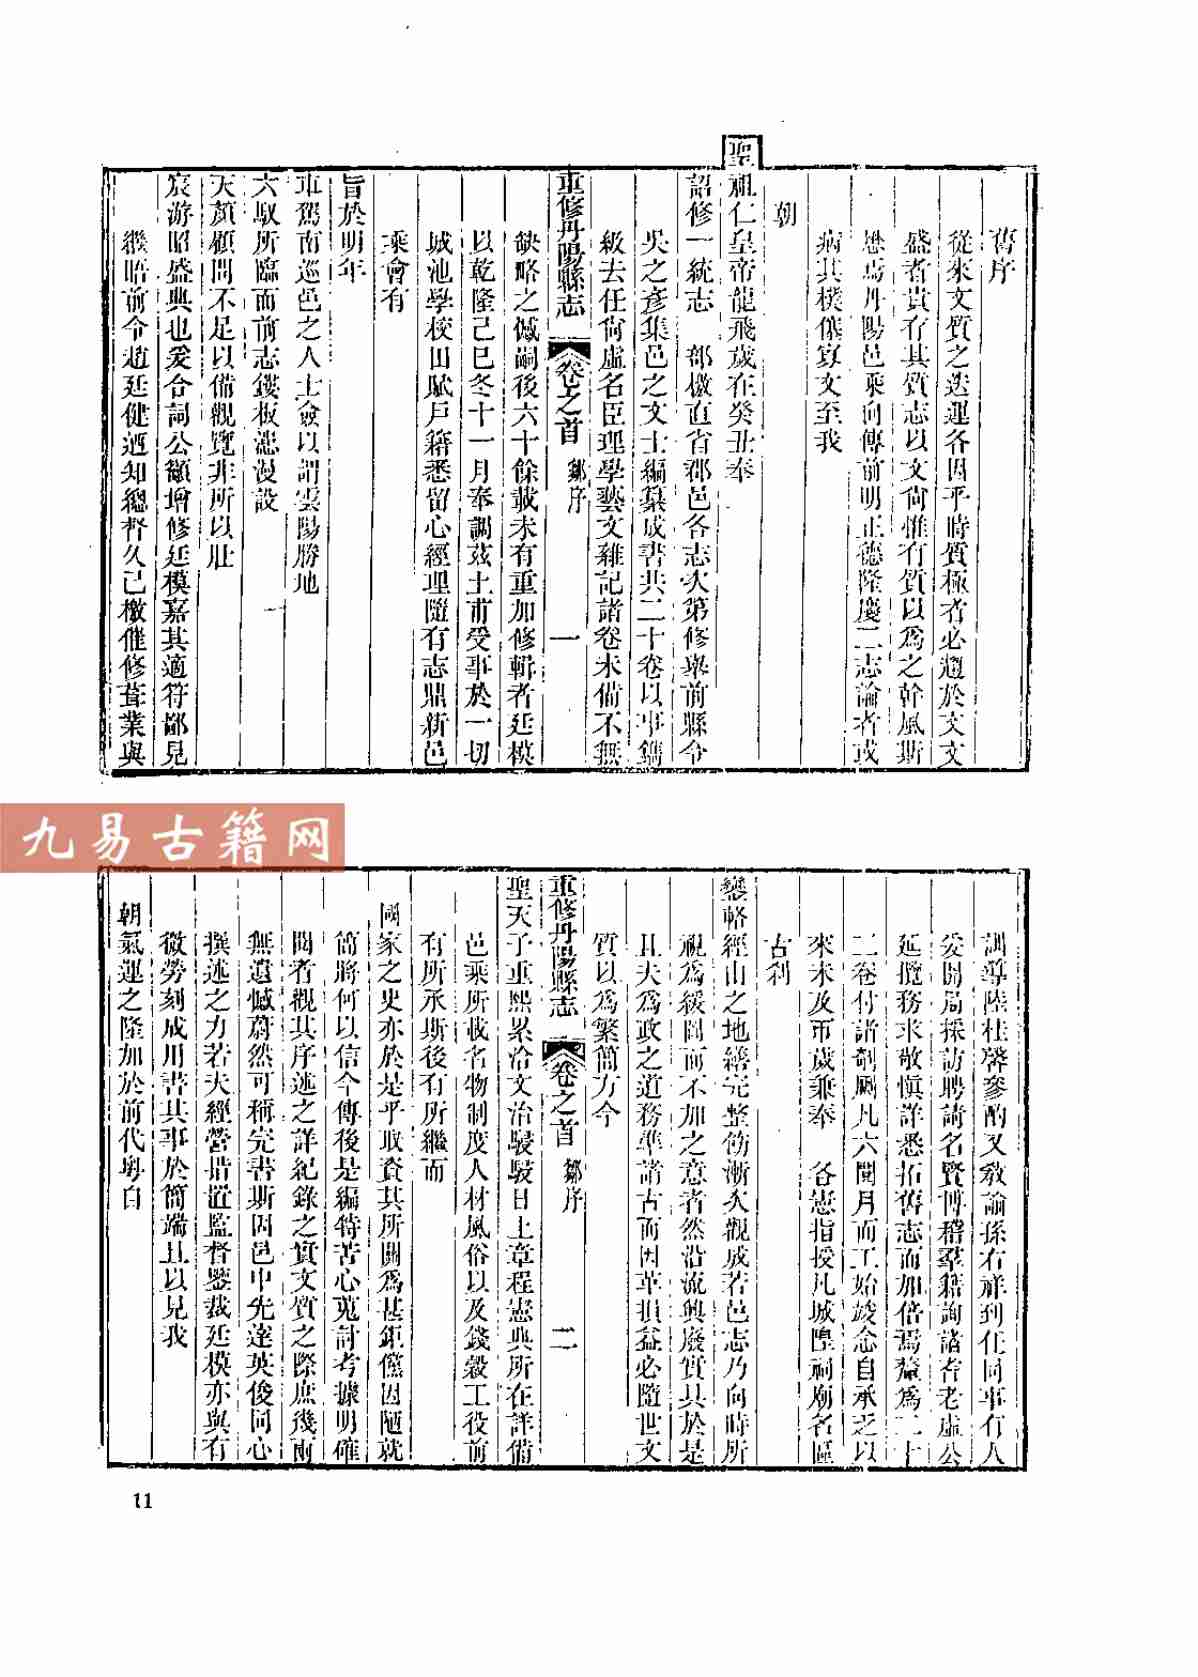 舊序
從來文質之迭運各因乎時質極者必趨於文文
盛者貴存其質志以文尚惟有質以爲之幹風斯
懋焉丹陽邑乘向傳前明正德隆慶二志論者或
病其樸僿寡文至我
朝
聖祖仁皇帝龍飛歲在癸丑奉
詔修一統志 部檄直省郡邑各志次第修舉前縣令
吳之彥集邑之文士編纂成書共二十卷以事鐫
級去任尙虛名臣理學藝文雜記諸卷未備不無
重修丹陽縣志 卷之首 鄒序 一
缺略之憾嗣後六十餘載未有重加修輯者廷模
以乾隆己巳冬十一月奉調茲土甫受事於一切
城池學校田賦戶籍悉留心經理隨有志鼎新邑
乘會有
旨於明年
車駕南巡邑之人士僉以謂雲陽勝地
六馭所臨而前志鏤板漶漫設
天顏顧問不足以備觀覽非所以壯
宸游昭盛典也爰合詞公籲增修廷模嘉其適符鄙見
繼晤前令趙廷健迺知總督久已檄催修葺業與
訓導陸桂馨參酌又敎諭孫右祥到任同事有人
爰開局採訪聘請名賢博稽羣籍詢諸耆老虛公
延攬務求敬愼詳悉拓舊志而加倍焉釐爲二十
二卷付諸剞劂凡六閱月而工始竣念自承乏以
來未及帀歲兼奉 各憲指授凡城隍祠廟名區
古刹
鑾輅經由之地繕完整飭漸次觀成若邑志乃向時所
視爲緩圖而不加之意者然沿流興廢實具於是
且夫爲政之道務準諸古而因革損益必隨世文
質以爲繁簡方今
重修丹陽縣志 卷之首 鄒序 二
聖天子重熙累洽文治駸駸日上章程憲典所在詳備
邑乘所載名物制度人材風俗以及錢穀工役前
有所承斯後有所繼而
國家之史亦於是乎取資其所關爲甚鉅儻因陋就
簡將何以信今傳後是編特苦心蒐討考據明確
閱者觀其序述之詳紀錄之實文質之際庶幾兩
無遺憾蔚然可稱完書斯固邑中先達英俊同心
撰述之力若夫經營措置監督鑒裁廷模亦與有
微勞刻成用書其事於簡端且以見我
朝氣運之隆加於前代粤自
九易古籍网
11